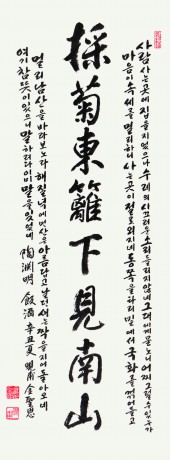 採菊東籬下見南山
사람 사는 곳에 집을 지었으나 수레의 시끄러운 소리 들리지 않네 그대에게 묻노니 어찌 그럴 수 있는가
마음이 속세를 멀리하니 사는 곳이 절로 외지네 동쪽 울타리 밑에서 국화를 꺾어 들고
멀리 남산을 바라보노라 해질녘에 멧산은 아름답고 날던 새는 짝을 지어 돌아오네
여기 참뜻이 있으니 말하려다 이미 말을 잊었네 陶淵明 飮酒 辛丑夏